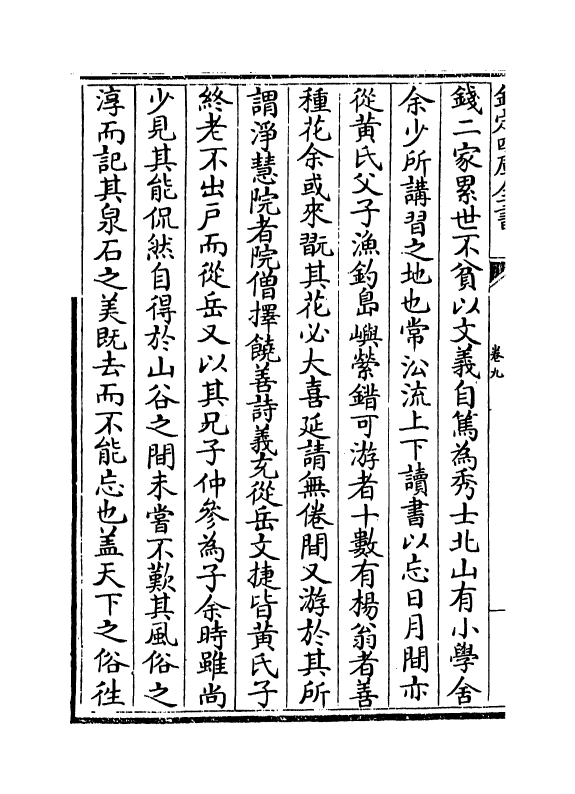 欽定四庫全書
卷九
錢二家累世不貧以文義自篤為秀士北山有小學舍
余少所講習之地也常㳂流上下讀書以忘日月間亦
從黃氏父子漁釣島嶼縈錯可游者十數有楊翁者善
種花余或來翫其花必大喜延請無倦間又游於其所
謂淨慧院者院僧擇饒善詩義充從岳文捷皆黃氏子
終老不出戸而從岳又以其兄子仲參為子余時雖尚
少見其能侃然自得於山谷之間未嘗不歎其風俗之
淳而記其泉石之美既去而不能忘也盖天下之俗徃